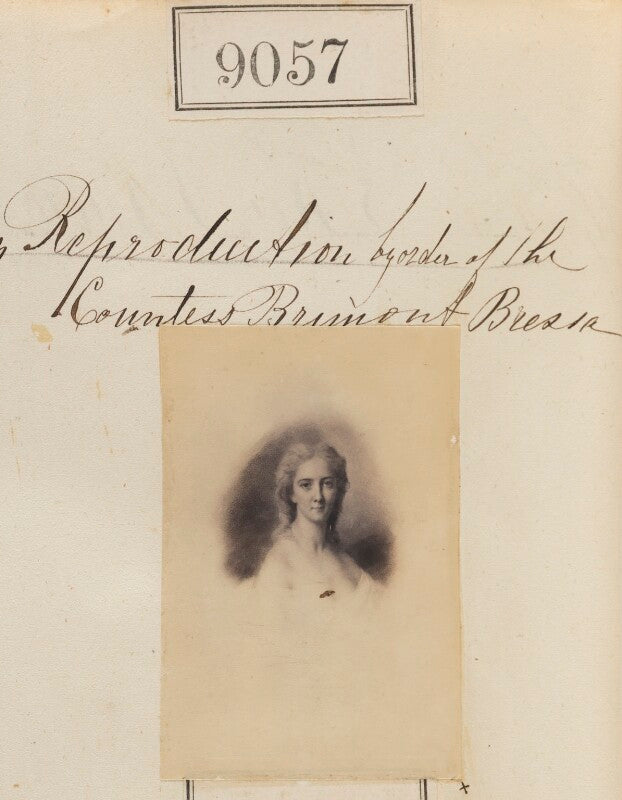 9057
Reproduction by order of the
Countess Brimont Bressa